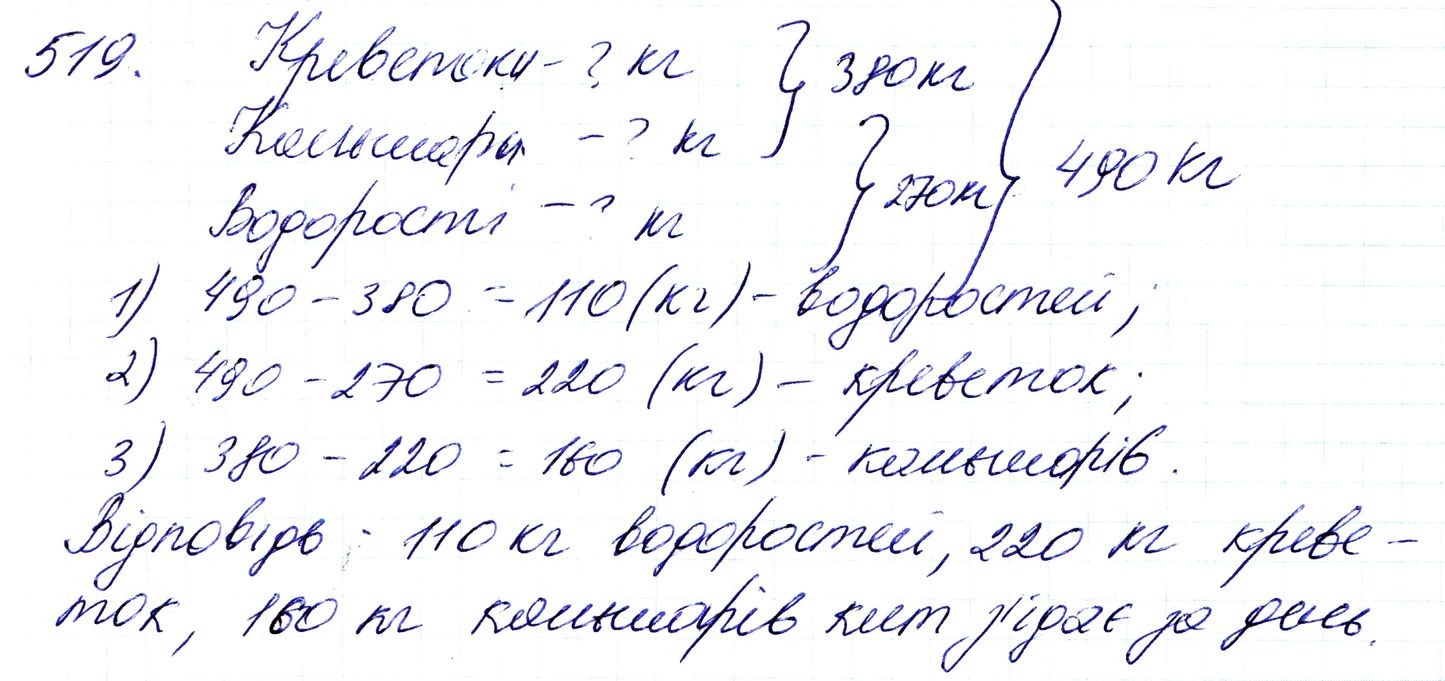 519. Креветоки - ? кг } 380 кг
Кальмари - ? кг } 270 кг } 490 кг
Водорості - ? кг
1) 490 - 380 = 110 (кг) - водоростей;
2) 490 - 270 = 220 (кг) - креветок;
3) 380 - 220 = 160 (кг) - кальмарів.
Відповідь: 110 кг водоростей, 220 кг креве-
ток, 160 кг кальмарів кит з'їдає за день.